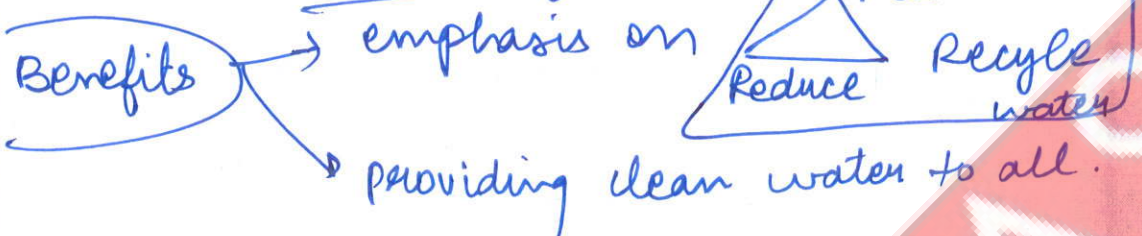 Benefits → emphasis on Reduce Recyle
water
providing clean water to all.